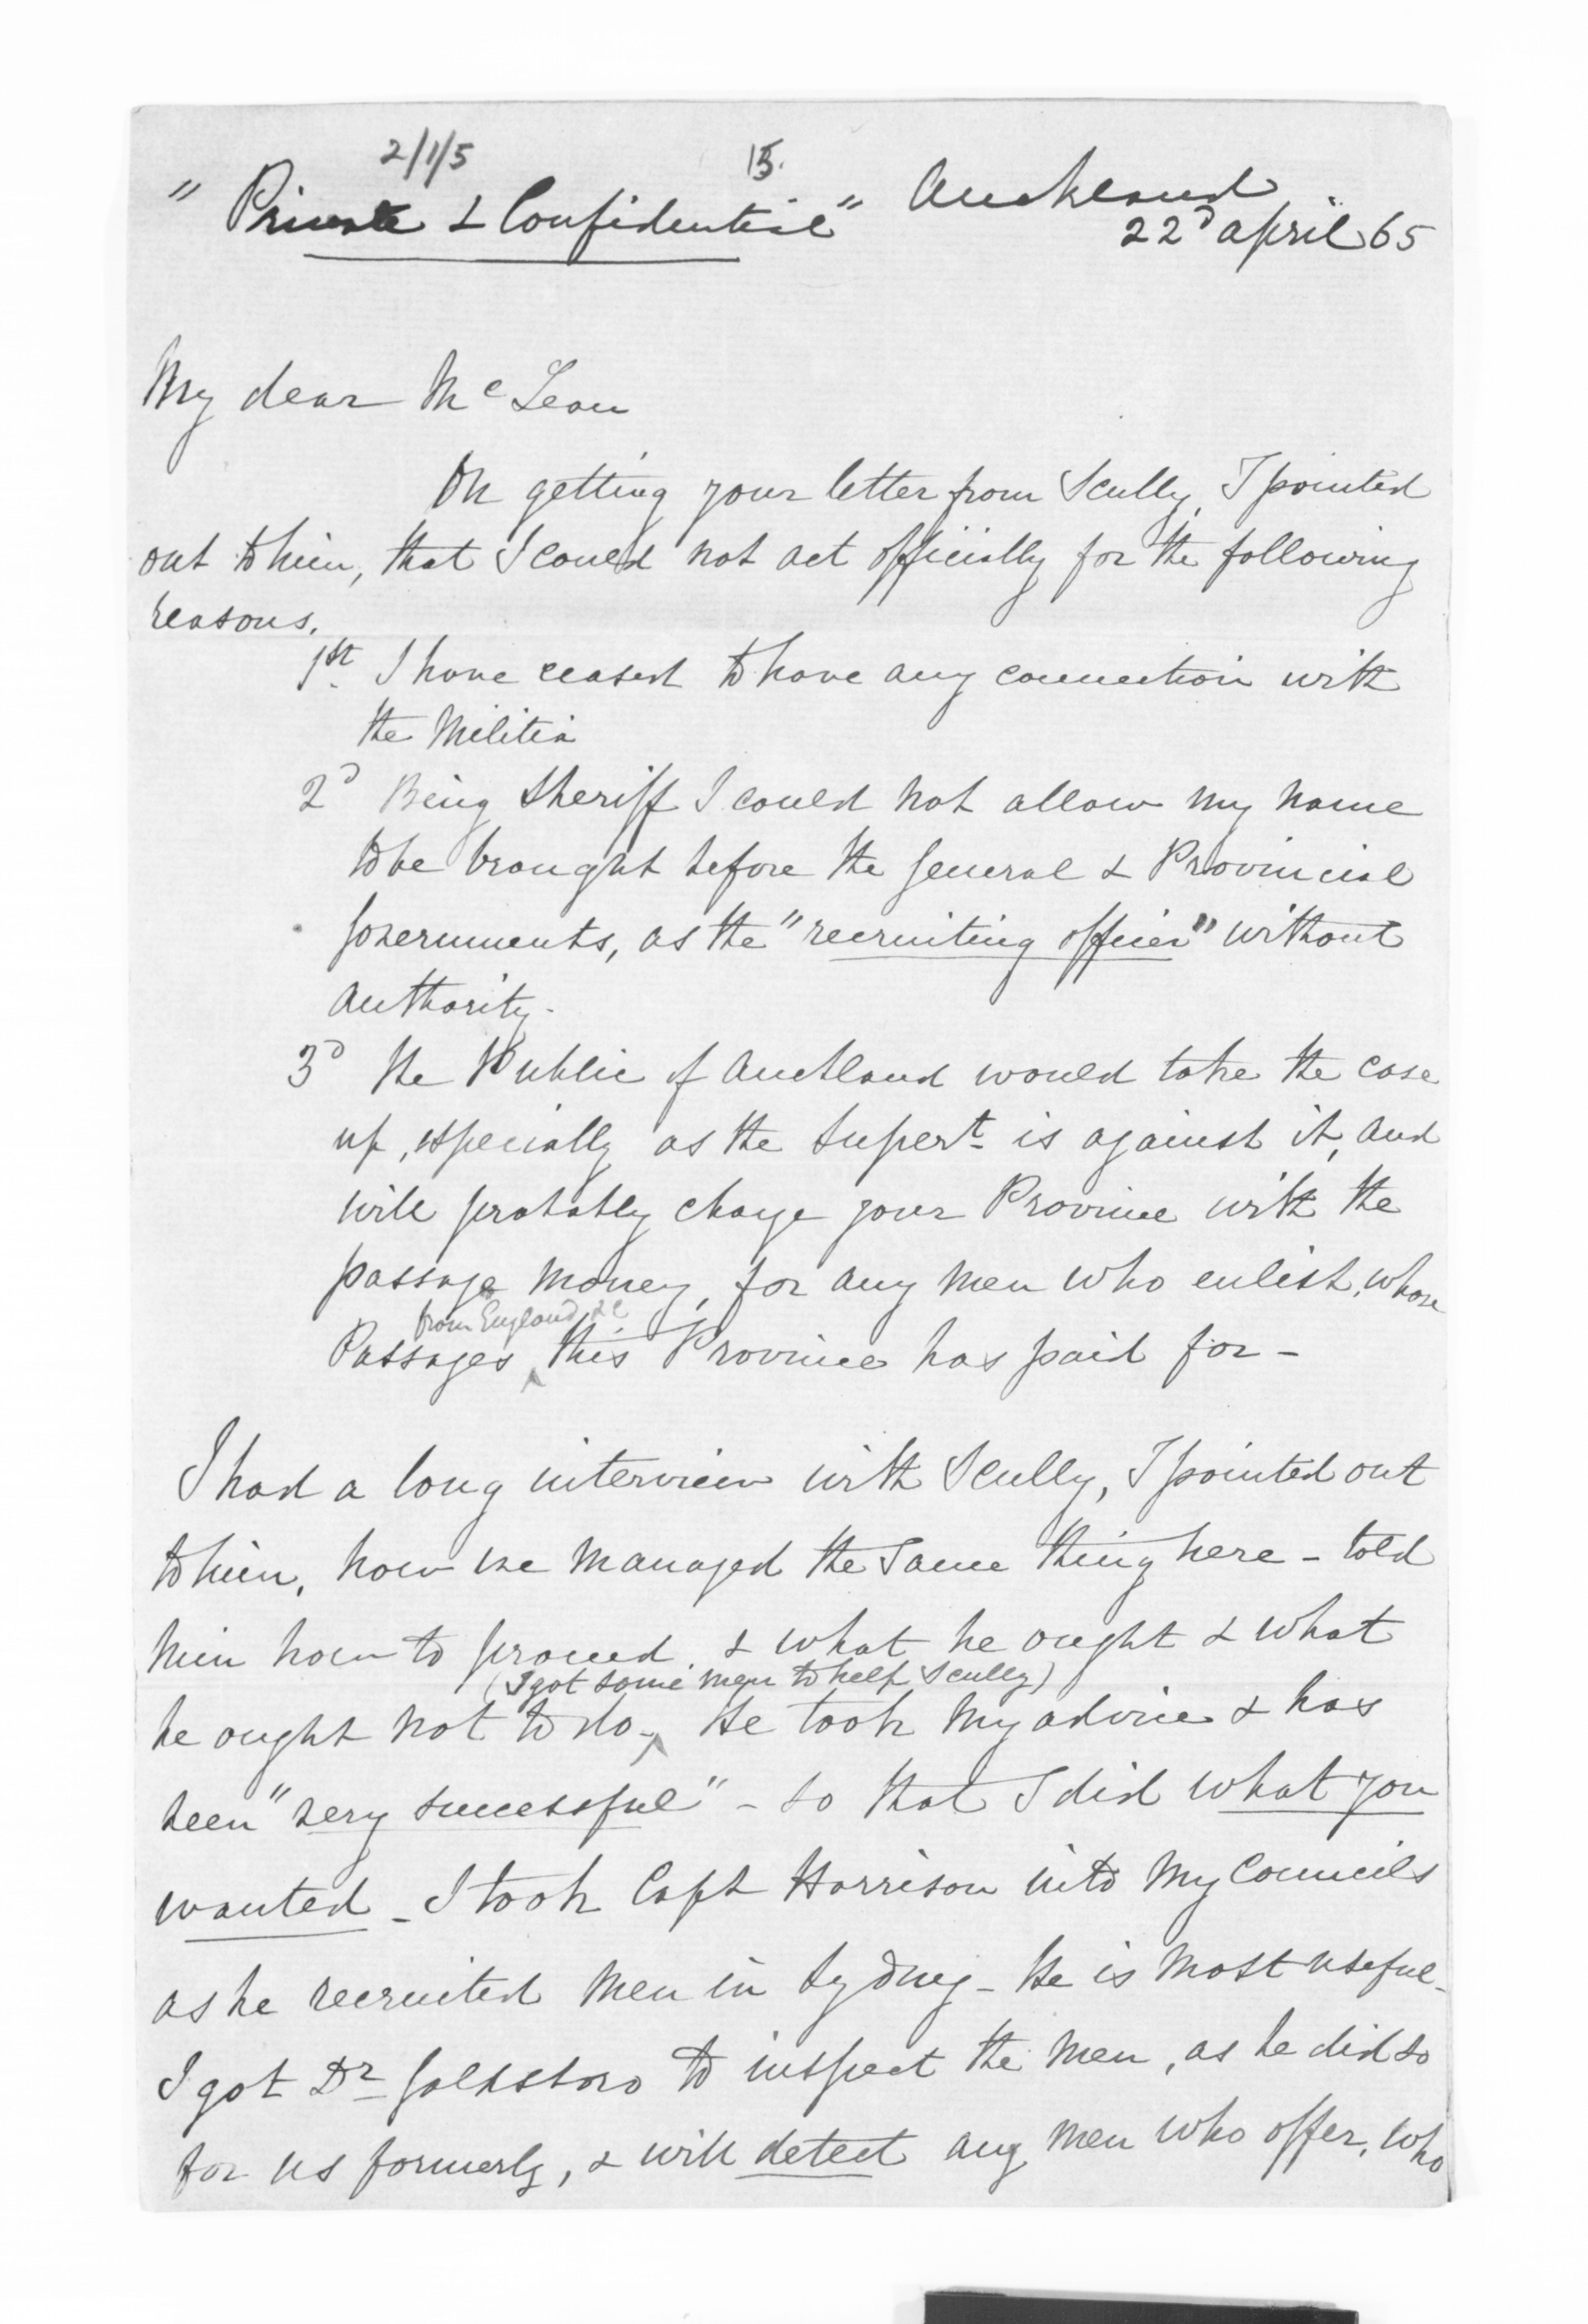 2/1/5 15.
"Private & Confidential" Auckland
22d April 65
My dear McLean
On getting your letter from Scully, I pointed
out to him, that I could not act officially for the following
reasons.
1st I have ceased to have any connection with
the Militia
2d Being Sheriff I could not allow my name
to be brought before the General & Provincial
Governments, as the "recruiting officer" without
authority.
3d The Public of Auckland would take the case
up, especially as the Supert is against it, and
will probably charge your Province with the
passage money, for any men who enlist, whose
from England &c
Passages this Province has paid for -
I had a long interview with Scully, I pointed out
to him, how we managed the same thing here - told
him how to proceed. & what he ought & what
(I got some men to help Scully)
he ought not to do - He took my advice & has
been "very successful" - so that I did what you
wanted - I took Capt Harrison into my Councils
as he recruited men in Sydney - He is most useful -
I got Dr Goldsboro to inspect the men, as he did so
for us formerly, & will detect any men who offer, who